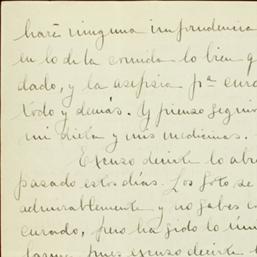 haré ninguna imprudencia
en lo de la comida lo bien q
dado, y la asepsia pª cura
todo y demás. Y pienso seguir
mi dieta y mis medicinas.
Excuso decirte lo abu
pasado estos días. Los fotos se
admirablemente y no sabes c
curado, pero ha sido lo úni
pues excuso decirte l